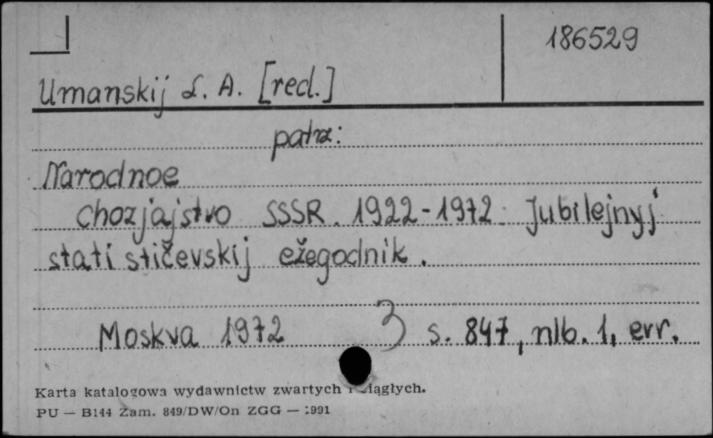 186529
Umanskij L. A. [red.]
patrz:
Narodnoe
chozjajstvo SSSR. 1922-1972. Jubilejnyj
statističevskij ežegodnik.
Moskva 1972 3 s. 847, nlb. 1, err.
Karta katalogowa wydawnictw zwartych i ciągłych.
PU — B144 Zam. 849/DW/On ZGG — 1991